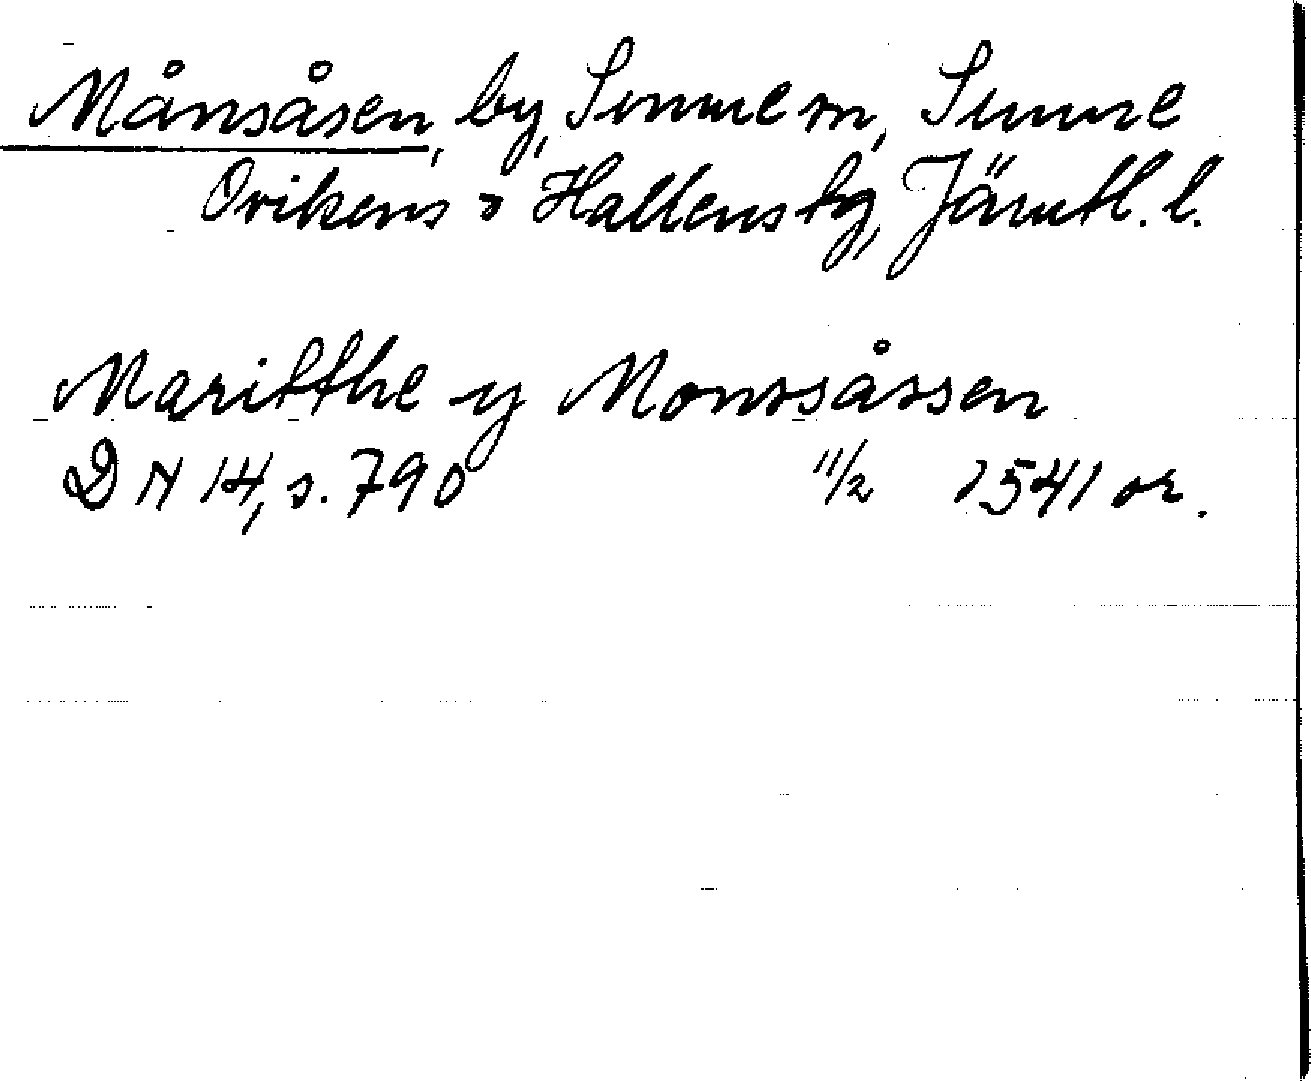 Månsåsen, by, Sunne sn, Sunne
Ovikens o Hallens tg, Jämtl. l.
Maritthe y Monssåssen
DN 14, s. 790 11/2 1541 or.